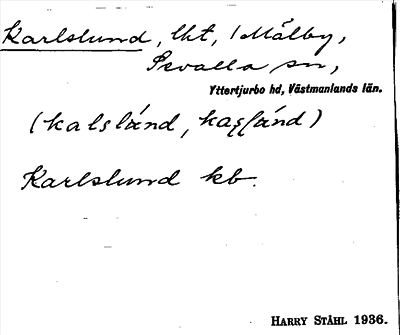 Karlslund, lht, i Målby,
Sevalla sn,
Yttertjurbo hd, Västmanlands län.
(kalslánd, )
Karlslund kb.
HARRY STÅHL 1936.